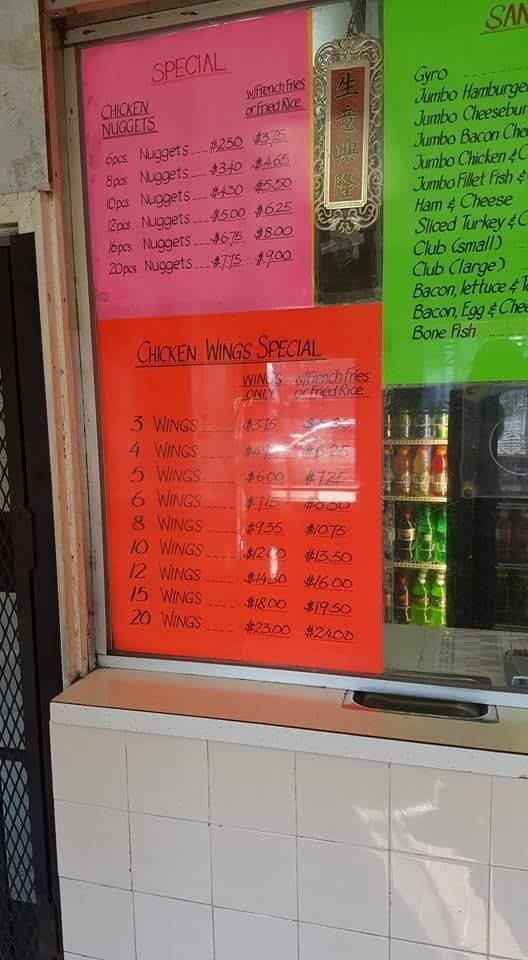 SPECIAL
CHICKEN NUGGETS
w/French Fries or Fried Rice
6pcs Nuggets $2.50 $3.75
8pcs Nuggets $3.40 $4.65
10pcs Nuggets $4.30 $5.50
12pcs Nuggets $5.00 $6.25
16pcs Nuggets $6.75 $8.00
20pcs Nuggets $7.75 $9.00
生意興隆
CHICKEN WINGS SPECIAL
WINGS ONLY
w/French Fries or Fried Rice
3 WINGS $3.75
4 WINGS $6.25
5 WINGS $6.00 $7.25
6 WINGS $7.15
8 WINGS $9.35 $10.75
10 WINGS $13.50
12 WINGS $16.00
15 WINGS $18.00 $19.50
20 WINGS $23.00 $24.00
SAN
Gyro
Jumbo Hamburge
Jumbo Cheesebur
Jumbo Bacon Chee
Jumbo Chicken & C
Jumbo Fillet Fish &
Ham & Cheese
Sliced Turkey & C
Club (small)
Club (large)
Bacon, lettuce & To
Bacon, Egg & Chee
Bone Fish